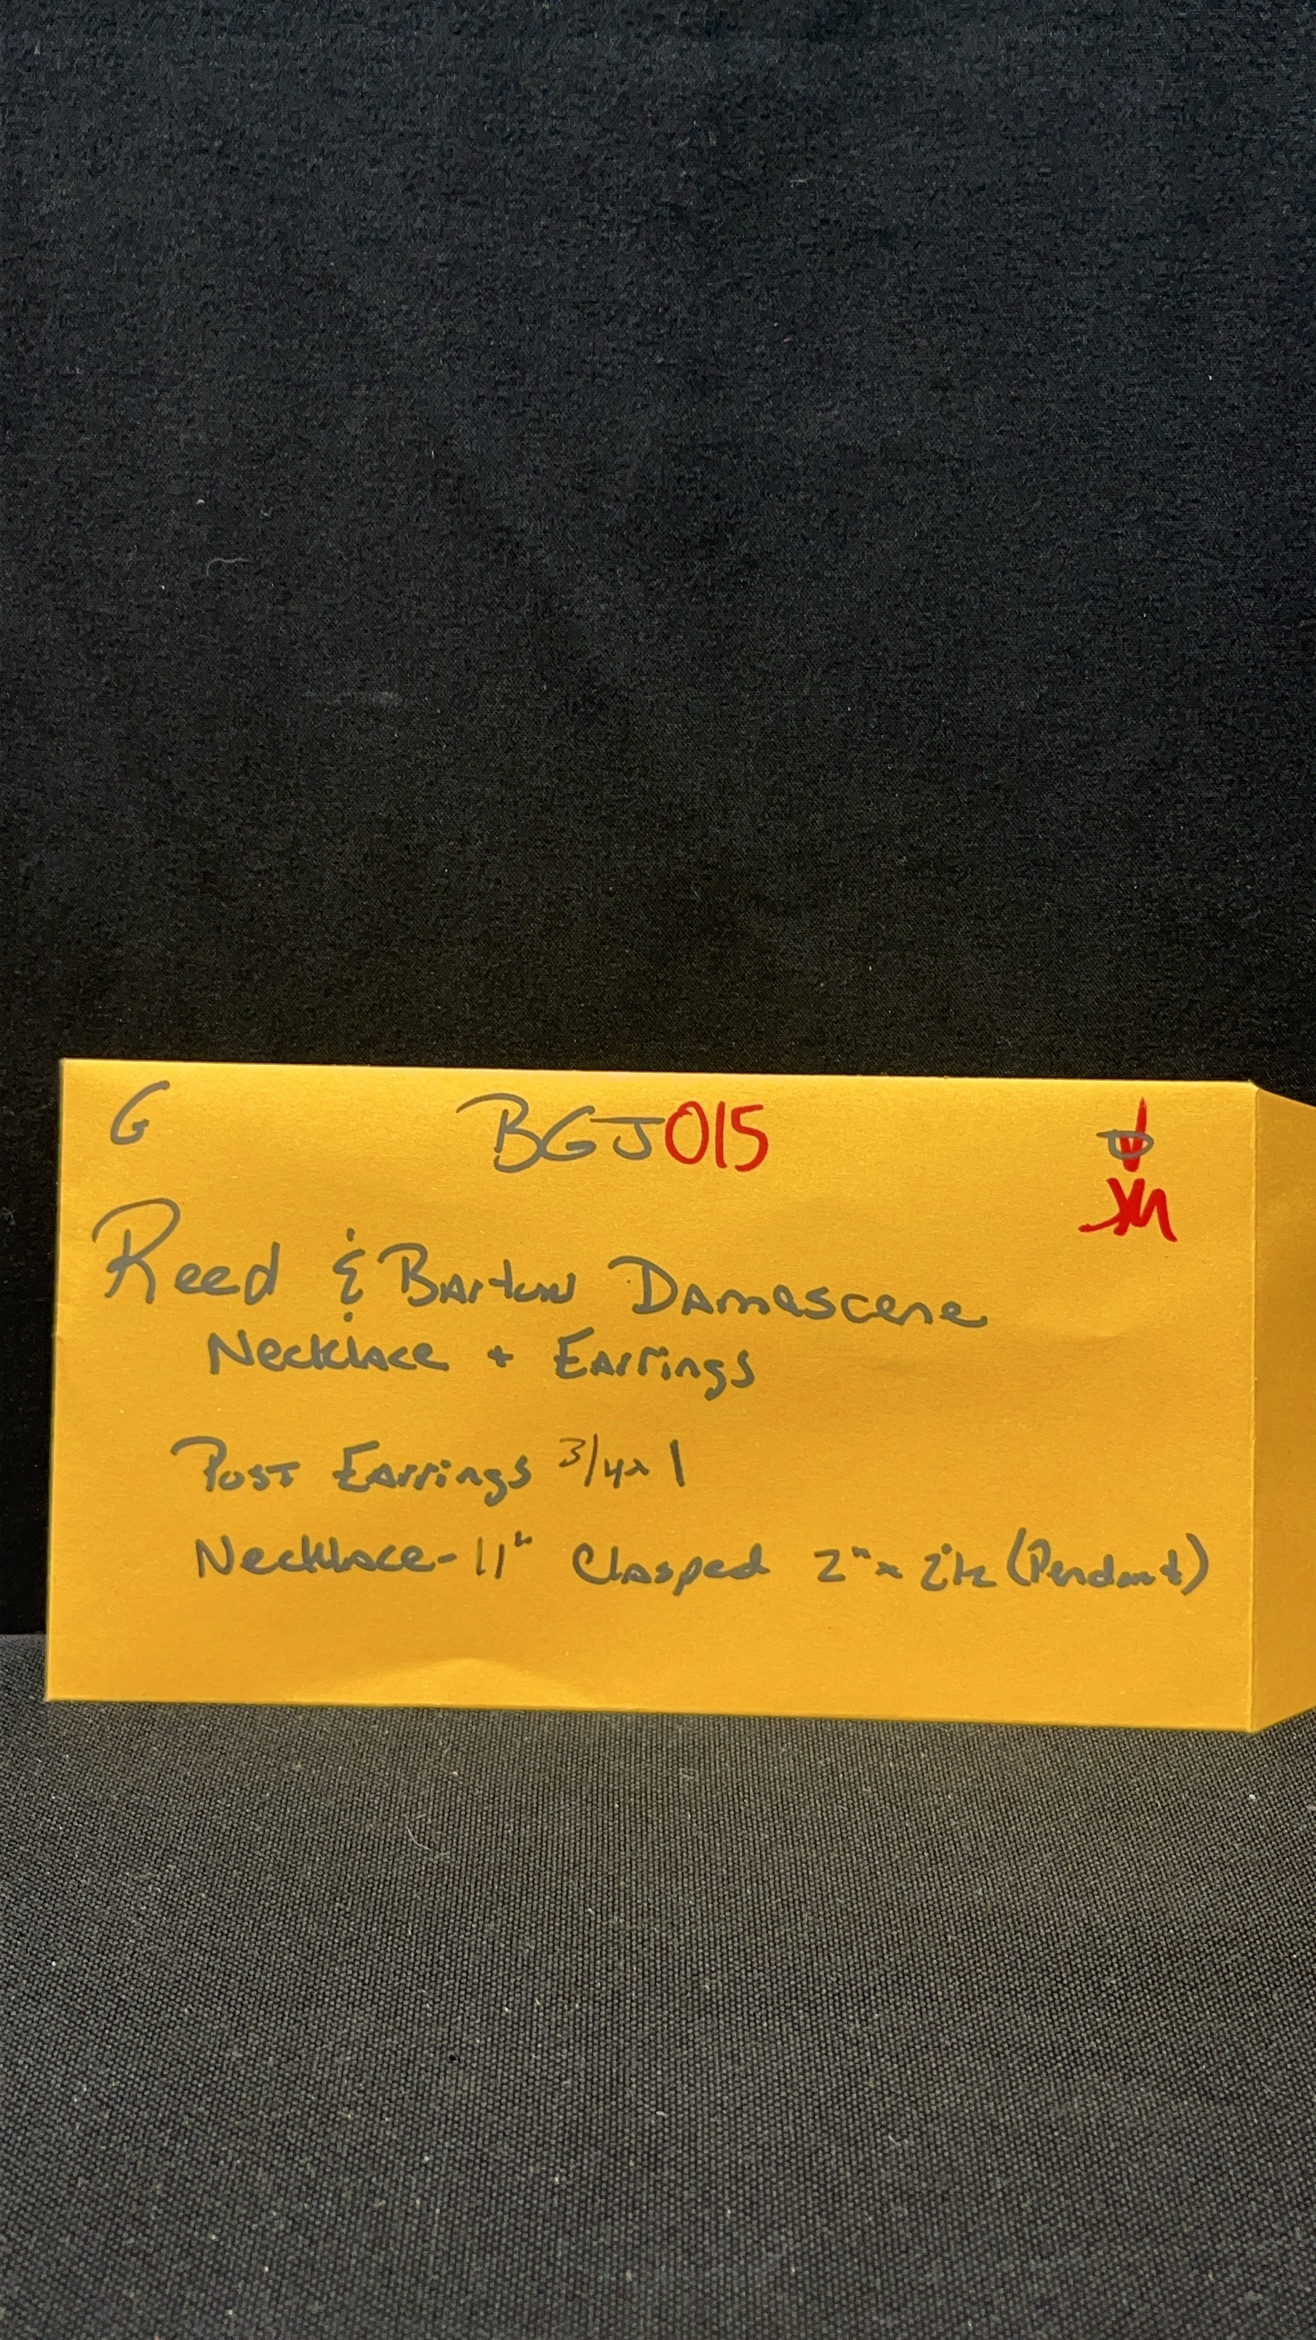 G BGJ015
Reed & Barton Damascene
Necklace + Earrings
Post Earrings 3/4 x 1
Necklace - 11" Clasped 2" x 2 1/2 (Pendant)